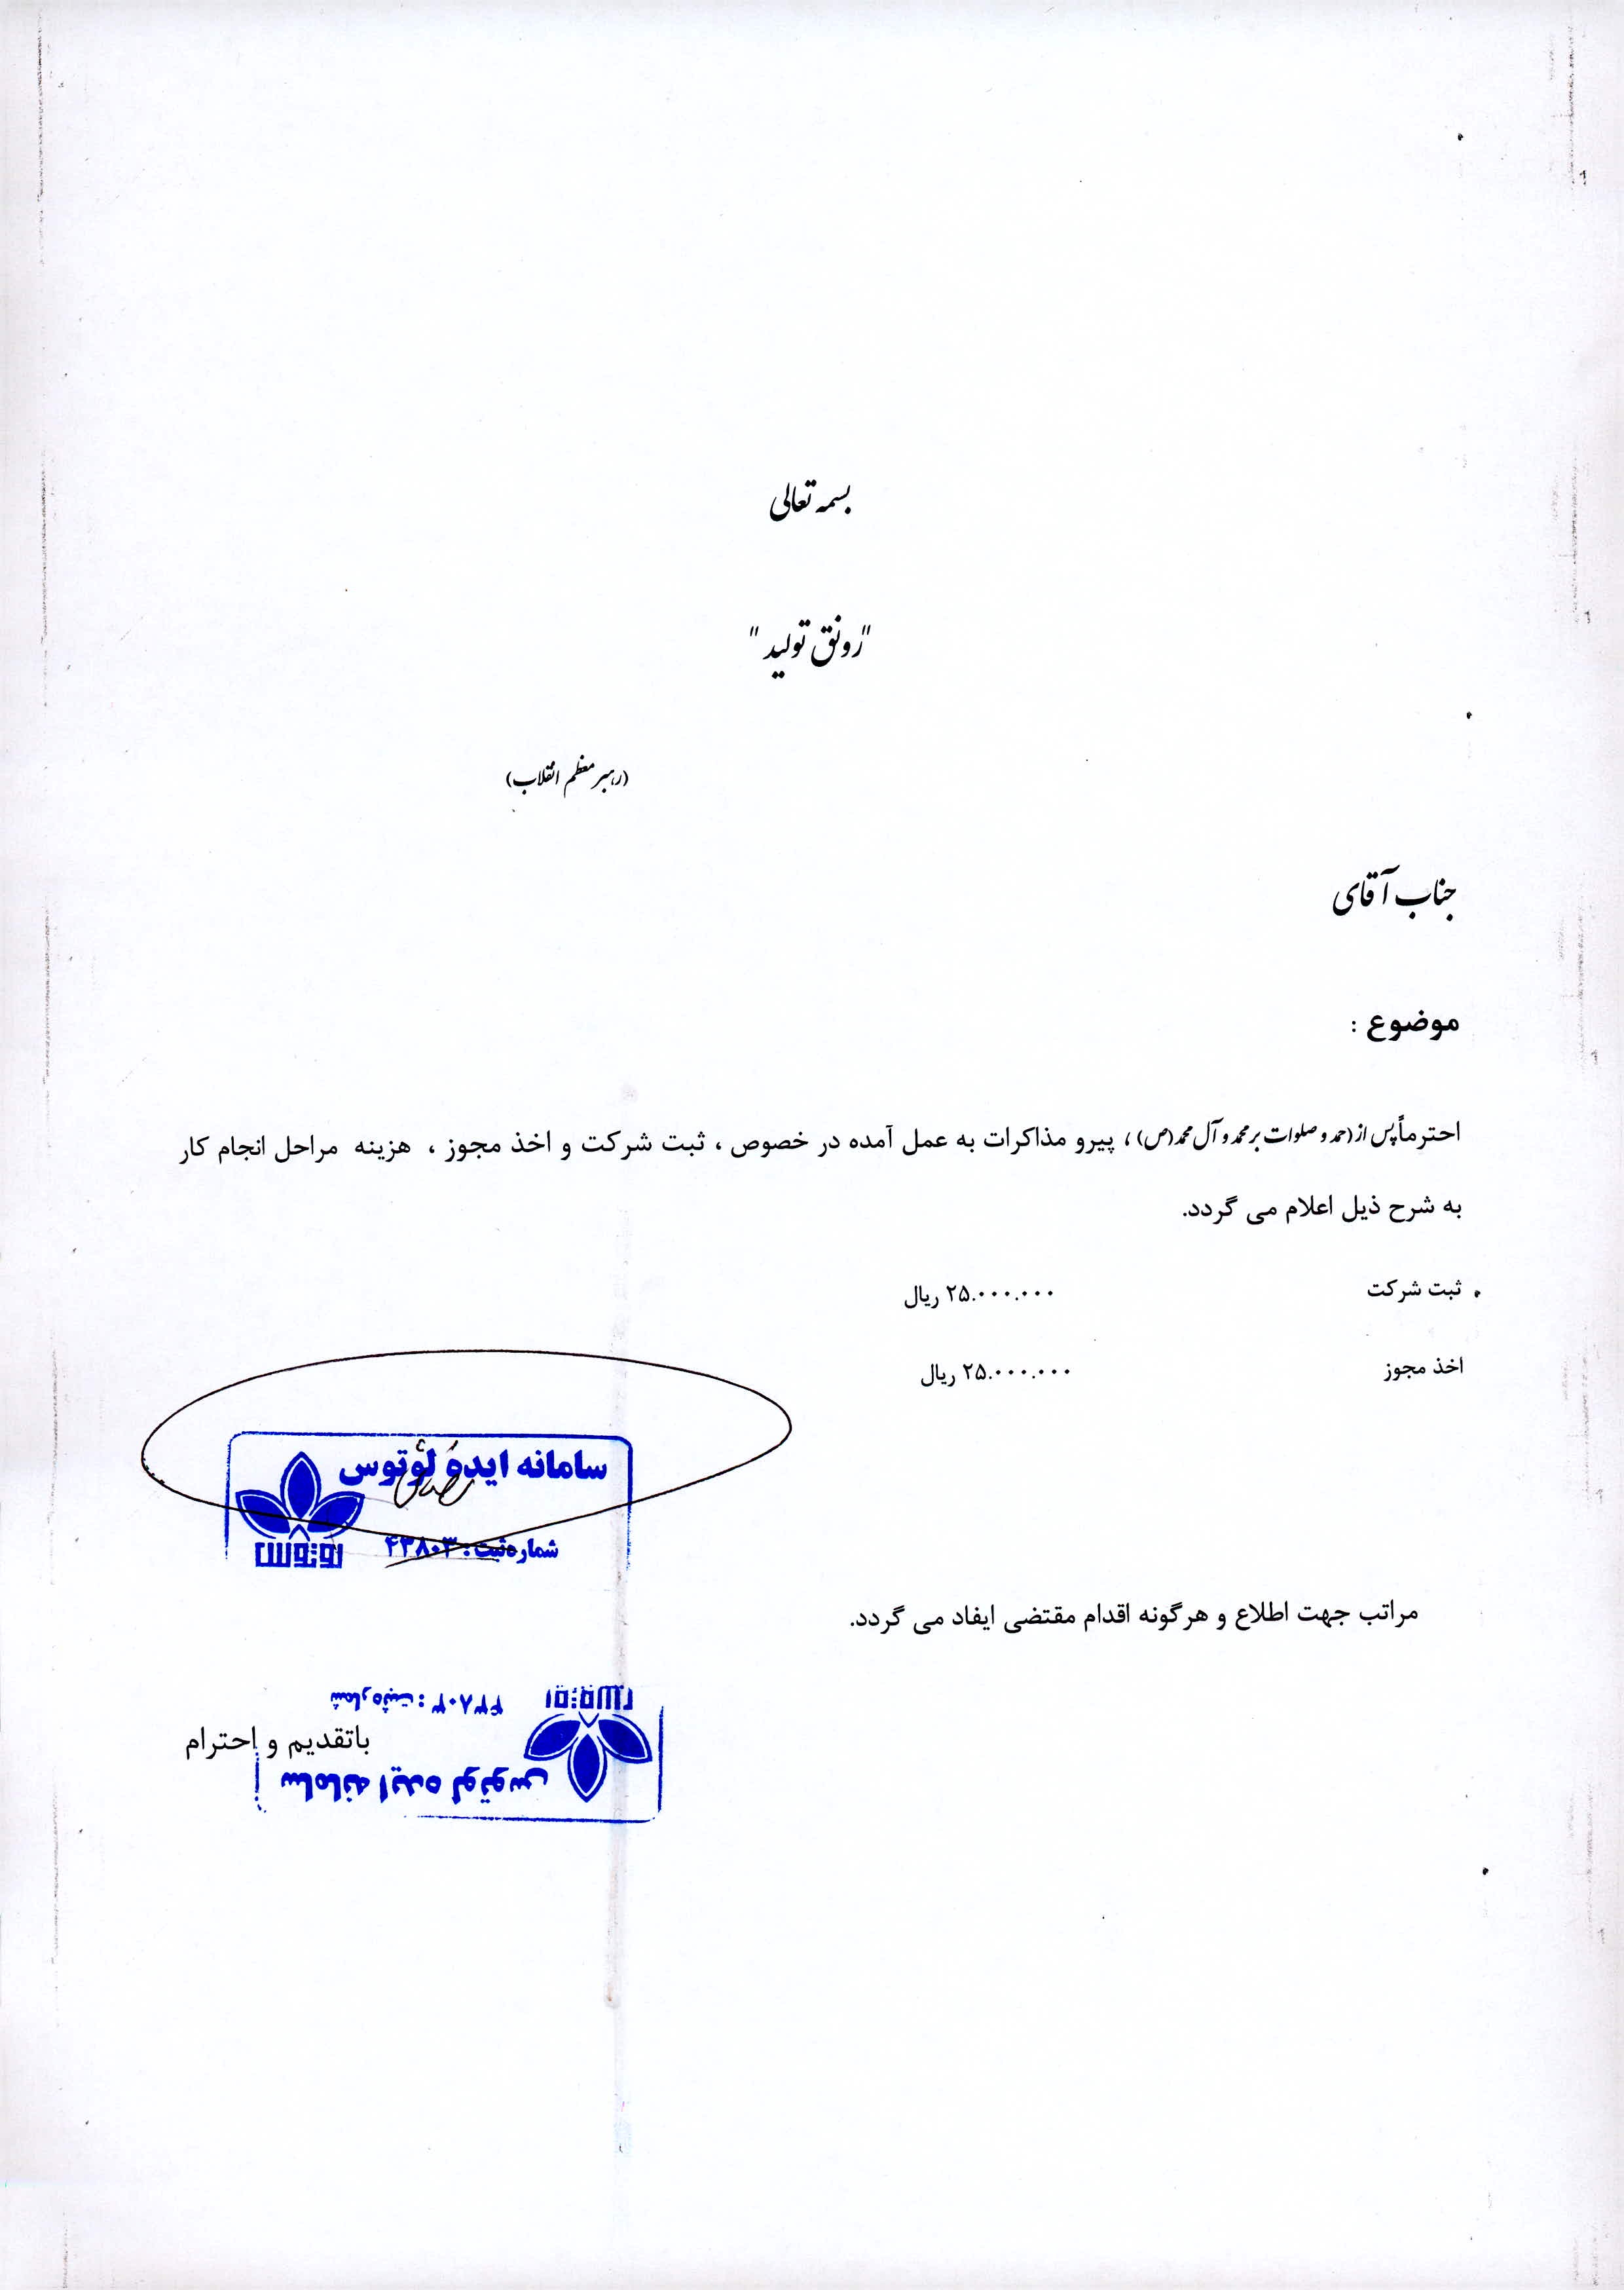 بسمه تعالی
"رونق تولید"
(رهبر معظم انقلاب)
جناب آقای
موضوع :
احتراماً پس از (حمد و صلوات بر محمد و آل محمد(ص) ، پیرو مذاکرات به عمل آمده در خصوص ، ثبت شرکت و اخذ مجوز ، هزینه مراحل انجام کار
به شرح ذیل اعلام می گردد.
ثبت شرکت ۲۵.۰۰۰.۰۰۰ ریال
اخذ مجوز ۲۵.۰۰۰.۰۰۰ ریال
سامانه ایده لوتوس
شماره ثبت : ۴۳۸۰۳
لوتوس
مراتب جهت اطلاع و هرگونه اقدام مقتضی ایفاد می گردد.
باتقدیم و احترام
سامانه ایده لوتوس
شماره ثبت : ۴۳۸۰۳
لوتوس